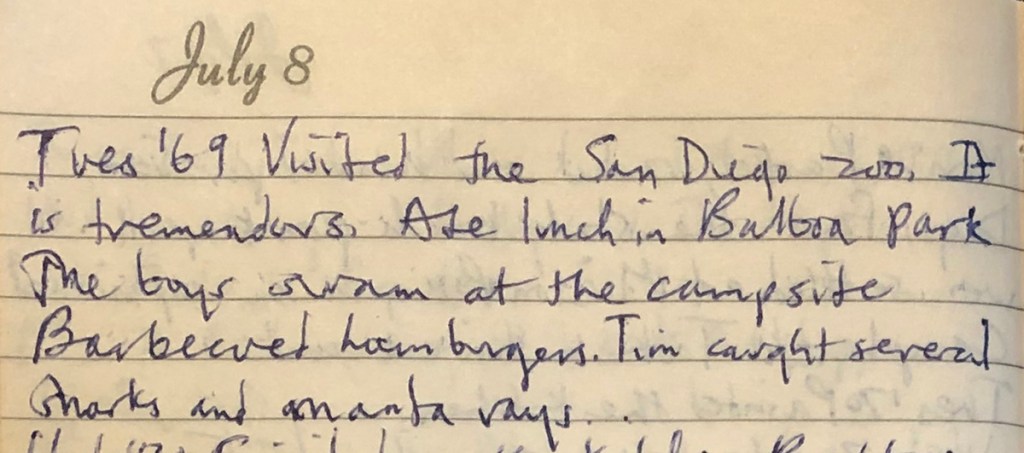 July 8
Tues '69 Visited the San Diego zoo. It
is tremendous. Ate lunch in Balboa Park
The boys swam at the campsite
Barbecued hamburgers. Tim caught several
sharks and manta rays.